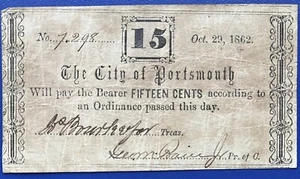 No. 7298 15 Oct. 29, 1862.
The City of Portsmouth
Will pay the Bearer FIFTEEN CENTS according to
an Ordinance passed this day.
Treas.
Jr. Pr. of C.